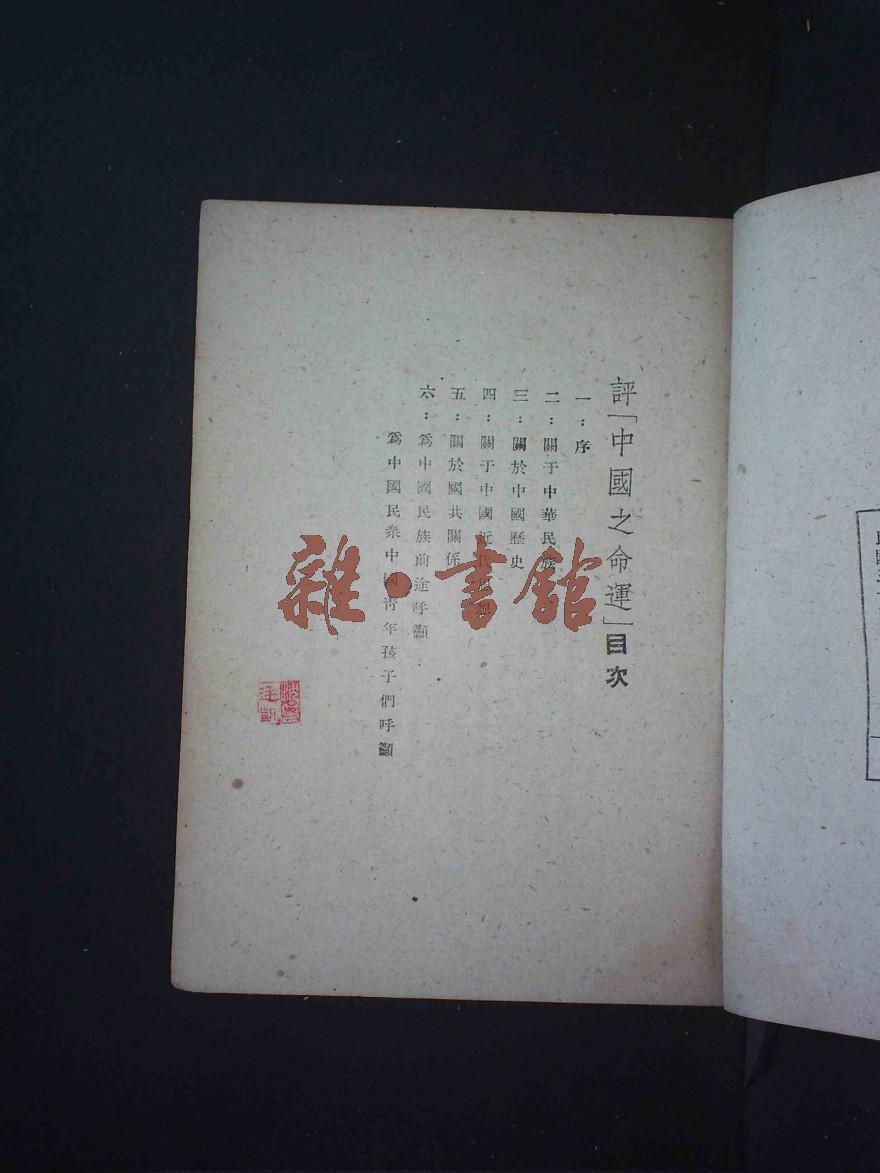 評「中國之命運」目次
一：序
二：關于中華民族
三：關於中國歷史
四：關于中國近代
五：關於國共關係
六：爲中國民族前途呼籲
爲中國民衆中國靑年孩子們呼籲
雜·書館